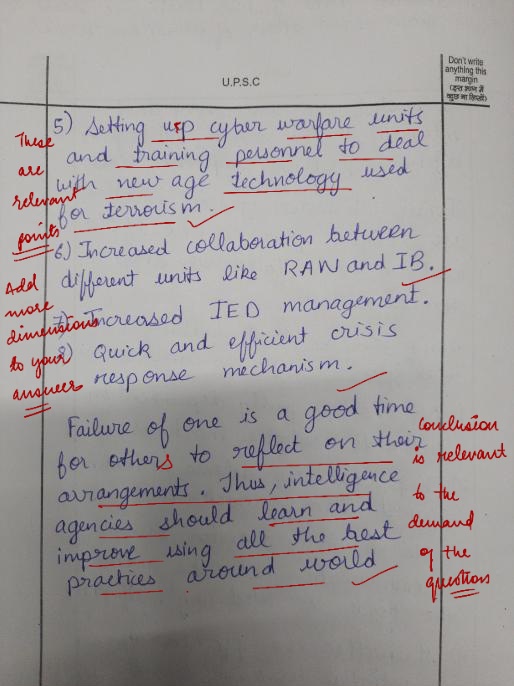 U.P.S.C
Don't write
anything this
margin
(इस भाग में
कुछ ना लिखें)
5) Setting up cyber warfare units
and training personnel to deal
with new age technology used
for terrorism.
These
are
relevant
points
6) Increased collaboration between
different units like RAW and IB.
7) Increased IED management.
8) Quick and efficient crisis
response mechanism.
Add
more
dimensions
to your
answer
Failure of one is a good time
for others to reflect on their
arrangements. Thus, intelligence
agencies should learn and
improve using all the best
practices around world
conclusion
is relevant
to the
demand
of the
question